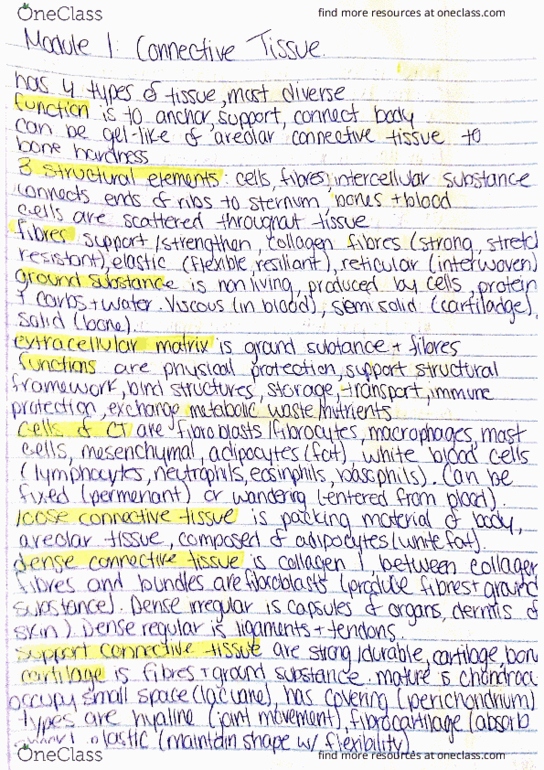 OneClass
find more resources at oneclass.com
Module 1: Connective Tissue
has 4 types of tissue, most diverse
function is to anchor, support, connect body
can be gel-like of areolar connective tissue to
bone hardness
3 structural elements: cells, fibres, intercellular substance
connects ends of ribs to sternum bones + blood
cells are scattered throughout tissue
fibres support/strengthen, collagen fibres (strong, stretch
resistant), elastic (flexible, resiliant), reticular (interwoven)
ground substance is non living, produced by cells, protein
+ carbs + water. Viscous (in blood), semi solid (cartiladge),
solid (bone).
extracellular matrix is ground subtance + fibres
functions are physical protection, support structural
framework, bind structures, storage, transport, immune
protection, exchange metabolic waste/nutrients
cells of CT are fibroblasts/fibrocytes, macrophages, mast
cells, mesenchymal, adipocytes (fat), white blood cells
(lymphocytes, neutrophils, eosinphils, basophils). Can be
fixed (permenant) or wandering (entered from blood).
loose connective tissue is packing material of body,
areolar tissue, composed of adipocytes (white fat).
dense connective tissue is collagen, between collagen
fibres and bundles are fibroblasts (produce fibres + ground
substance). Dense irregular is capsules of organs, dermis of
skin). Dense regular is ligaments + tendons.
support connective tissue are strong/durable, cartilage, bon
cartilage is fibres + ground substance. mature is chondro
occupy small space (lacunae), has covering (perichondrium)
types are hyaline (joint movement), fibrocartilage (absorb
elastic (maintain shape w/ flexibility).
OneClass
find more resources at oneclass.com